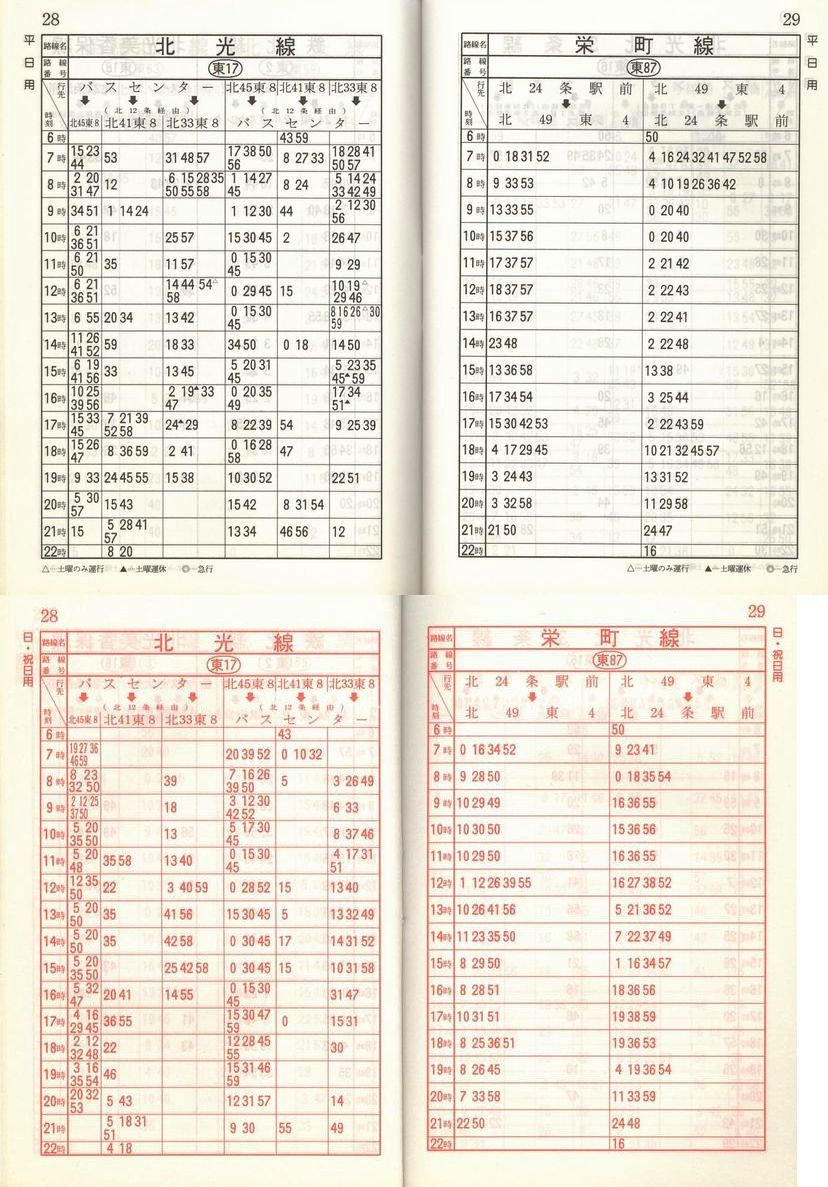 28
平日用
路線名 北光線
路線番号 東17
行先 バスセンター 北45東8 北41東8 北33東8
(北12条経由) (北12条経由)
時刻 北45東8 北41東8 北33東8 バスセンター
6時 43 59
7時 15 23 44 53 31 48 57 17 38 50 56 8 27 33 18 28 41 50 57
8時 2 20 31 47 12 6 15 28 35 50 55 58 1 14 27 45 8 24 5 14 24 33 42 49
9時 34 51 1 14 24 1 12 30 44 2 12 30 56
10時 6 21 36 51 25 57 15 30 45 2 26 47
11時 6 21 50 35 11 57 0 15 30 45 9 29
12時 6 21 36 51 14 44 54△ 58 0 29 45 15 10 19△ 29 46
13時 6 55 20 34 13 42 0 15 30 45 8 16 26△ 30 59
14時 11 26 41 52 59 18 33 34 50 0 18 14 50
15時 6 19 41 56 33 13 45 5 20 31 45 5 23 35 45▲ 59
16時 10 25 39 56 2 19▲ 33 47 0 20 35 49 17 34 51▲
17時 15 33 45 7 21 39 52 58 24▲ 29 8 22 39 54 9 25 39
18時 15 26 47 8 36 59 2 41 0 16 28 58 47
19時 9 33 24 45 55 15 38 10 30 52 22 51
20時 5 30 57 15 43 15 42 8 31 54
21時 15 5 28 41 57 13 34 46 56 12
22時 8 20
△―土曜のみ運行 ▲―土曜運休 ◎―急行
29
平日用
路線名 栄町線
路線番号 東87
行先 北24条駅前 北49東4
時刻 北49東4 北24条駅前
6時 50
7時 0 18 31 52 4 16 24 32 41 47 52 58
8時 9 33 53 4 10 19 26 36 42
9時 13 33 55 0 20 40
10時 15 37 56 0 20 40
11時 17 37 57 2 21 42
12時 18 37 57 2 22 43
13時 16 37 57 2 22 41
14時 23 48 2 22 48
15時 13 36 58 13 38
16時 17 34 54 3 25 44
17時 15 30 42 53 2 22 43 59
18時 4 17 29 45 10 21 32 45 57
19時 3 24 43 13 31 52
20時 3 32 58 11 29 58
21時 21 50 24 47
22時 16
△―土曜のみ運行 ▲―土曜運休 ◎―急行
28
日・祝日用
路線名 北光線
路線番号 東17
行先 バスセンター 北45東8 北41東8 北33東8
(北12条経由) (北12条経由)
時刻 北45東8 北41東8 北33東8 バスセンター
6時 43
7時 19 27 36 46 59 20 39 52 0 10 32
8時 8 23 32 50 39 7 16 26 39 50 5 3 26 49
9時 2 12 25 37 50 18 3 12 30 42 52 6 33
10時 5 20 35 50 13 5 17 30 45 8 37 46
11時 5 20 48 35 58 13 40 0 15 30 45 4 17 31 51
12時 12 35 50 22 3 40 59 0 28 52 15 13 40
13時 5 20 50 35 41 56 15 30 45 5 13 32 49
14時 5 20 50 35 42 58 0 30 45 17 14 31 52
15時 5 20 35 50 25 42 58 0 30 45 15 10 31 58
16時 5 32 47 20 41 14 55 0 15 30 45 31 47
17時 4 16 29 45 36 55 15 30 47 59 0 15 31
18時 2 12 32 48 22 12 28 45 55 30
19時 3 16 35 54 46 15 31 46 59
20時 20 32 53 5 43 12 31 57 14
21時 5 18 31 51 9 30 55 49
22時 4 18
29
日・祝日用
路線名 栄町線
路線番号 東87
行先 北24条駅前 北49東4
時刻 北49東4 北24条駅前
6時 50
7時 0 16 34 52 9 23 41
8時 9 28 50 0 18 35 54
9時 10 29 49 16 36 55
10時 10 30 50 15 36 56
11時 10 29 50 16 36 55
12時 1 12 26 39 55 16 27 38 52
13時 10 26 41 56 5 21 36 52
14時 11 23 35 50 7 22 37 49
15時 8 29 50 1 16 34 57
16時 8 28 51 18 36 56
17時 10 31 51 19 38 59
18時 8 25 36 51 19 36 53
19時 8 26 45 4 19 36 54
20時 7 33 58 11 33 59
21時 22 50 24 48
22時 16